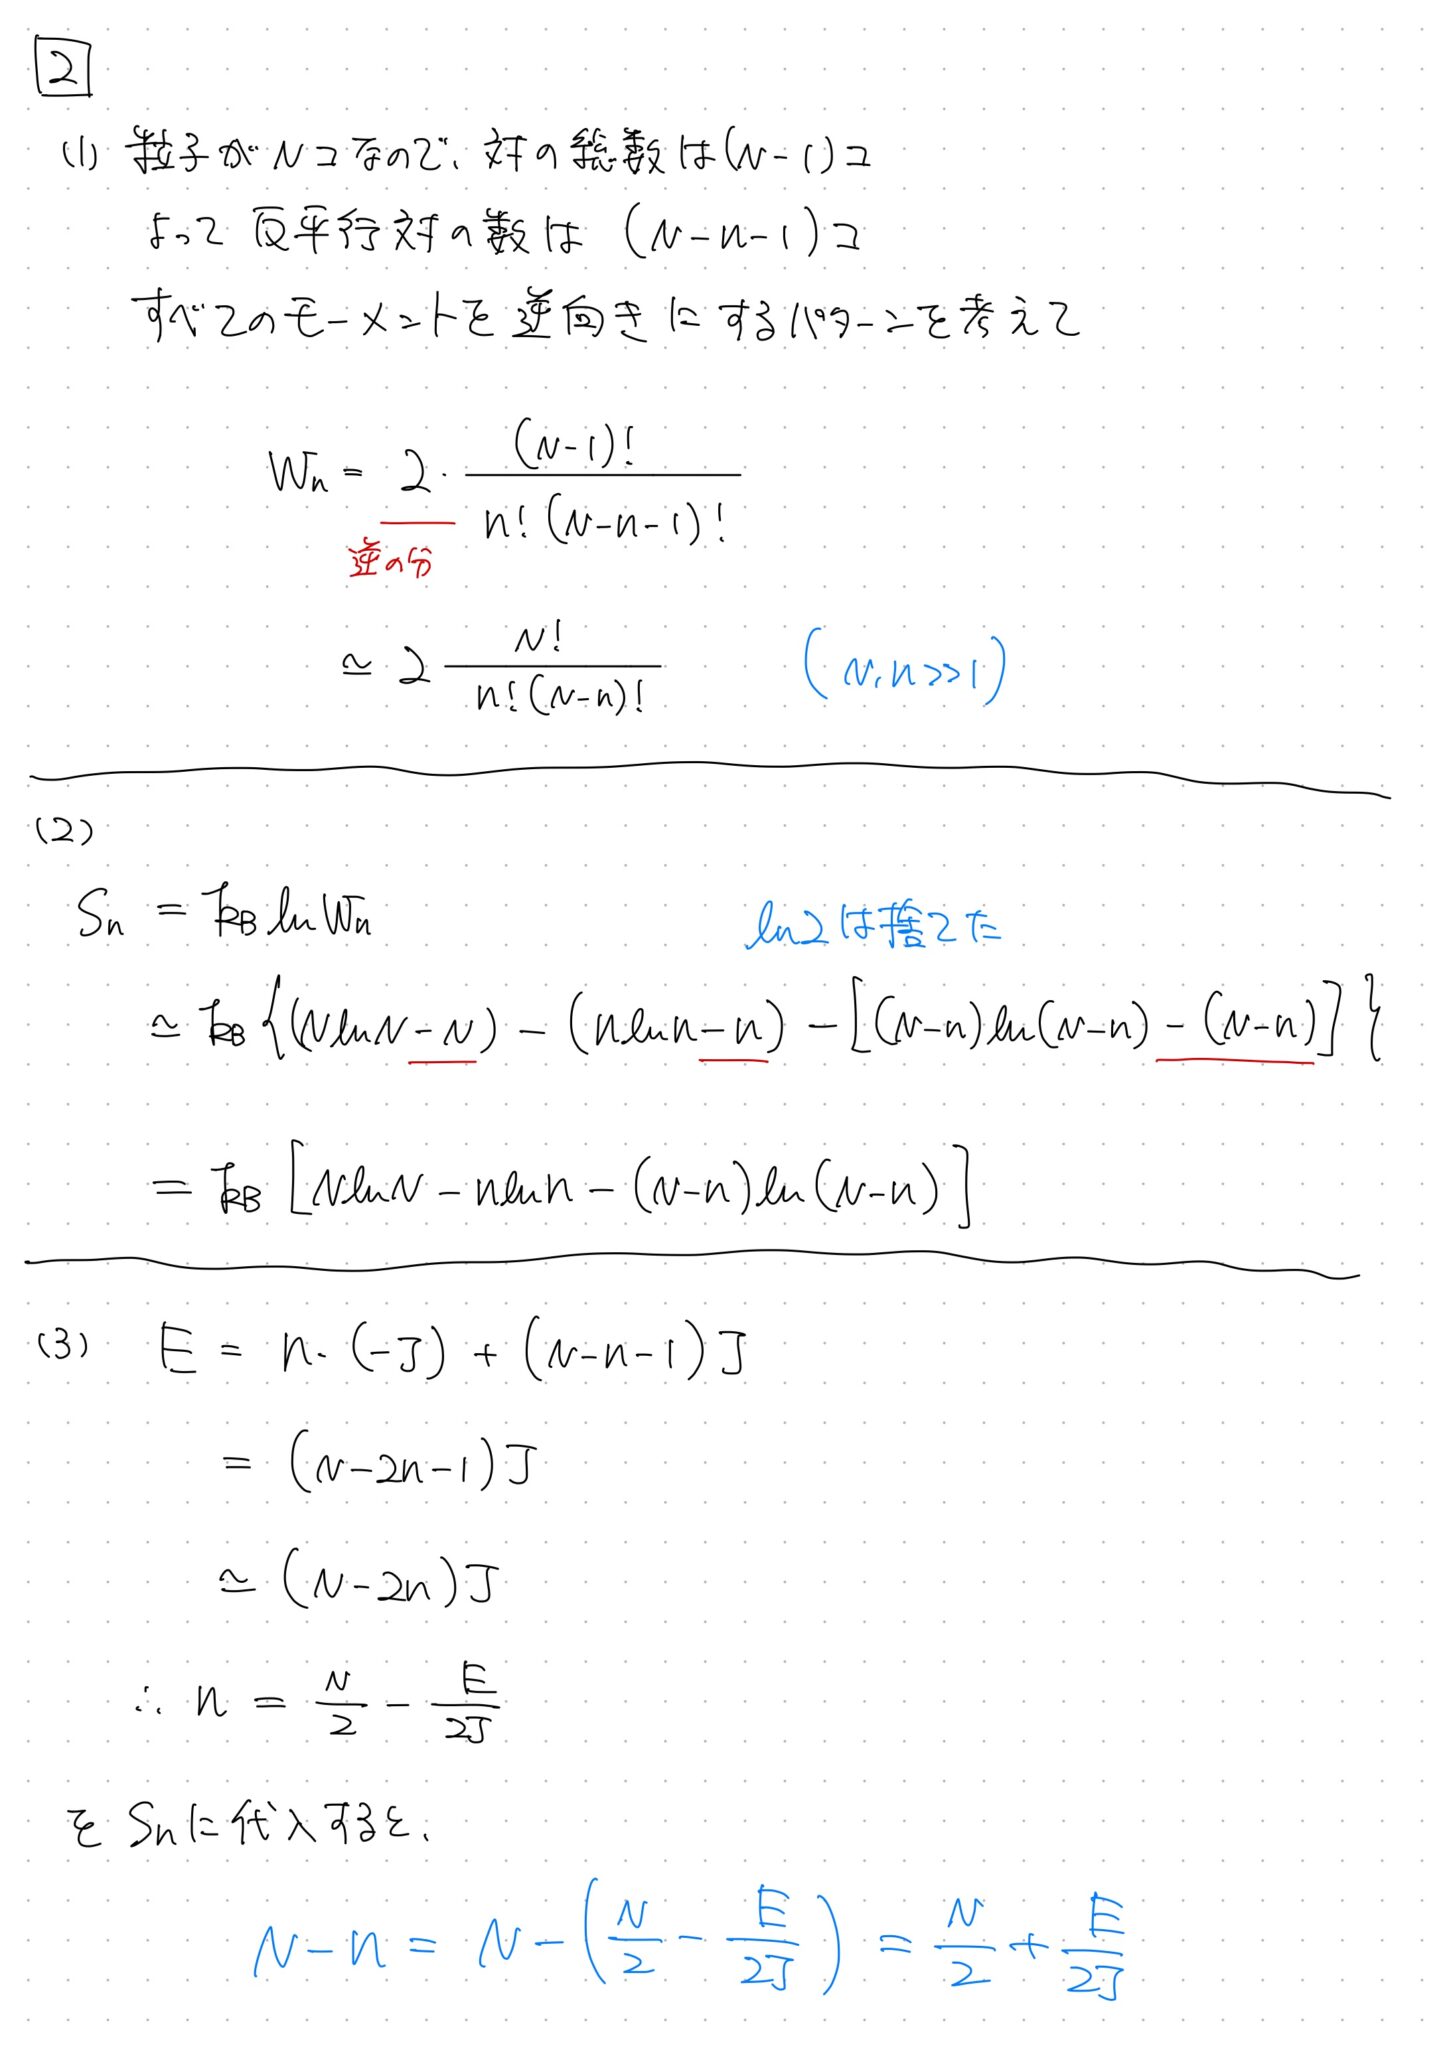 2
(1) 粒子がNコなので、対の総数は(N-1)コ
よって反平行対の数は (N-n-1)コ
すべてのモーメントを逆向きにするパターンを考えて
Wn = 2・(N-1)! / n!(N-n-1)!
逆の分
≃ 2 N! / n!(N-n)! (N,n>>1)
(2)
Sn = kB ln Wn ln2は捨てた
≃ kB {(N ln N - N) - (n ln n - n) - [(N-n) ln (N-n) - (N-n)]}
= kB [N ln N - n ln n - (N-n) ln (N-n)]
(3) E = n・(-J) + (N-n-1)J
= (N-2n-1)J
≃ (N-2n)J
∴ n = N/2 - E/2J
を Snに代入すると、
N-n = N-(N/2 - E/2J) = N/2 + E/2J